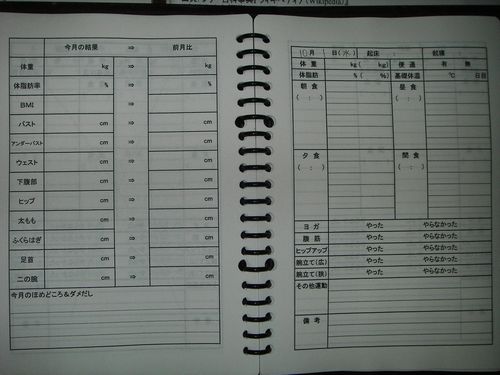 今月の結果 ⇒ 前月比
体重 kg ⇒ kg
体脂肪率 % ⇒ %
BMI ⇒
バスト cm ⇒ cm
アンダーバスト cm ⇒ cm
ウェスト cm ⇒ cm
下腹部 cm ⇒ cm
ヒップ cm ⇒ cm
太もも cm ⇒ cm
ふくらはぎ cm ⇒ cm
足首 cm ⇒ cm
二の腕 cm ⇒ cm
今月のほめどころ&ダメだし
10月 日(水) 起床 : 就寝 :
体重 kg ( kg) 便通 有 無
体脂肪 % ( %) 基礎体温 ℃ 日目
朝食 昼食
( : ) ( : )
夕食 間食
( : ) ( : )
ヨガ やった やらなかった
腹筋 やった やらなかった
ヒップアップ やった やらなかった
腕立て(広) やった やらなかった
腕立て(狭) やった やらなかった
その他運動
備考